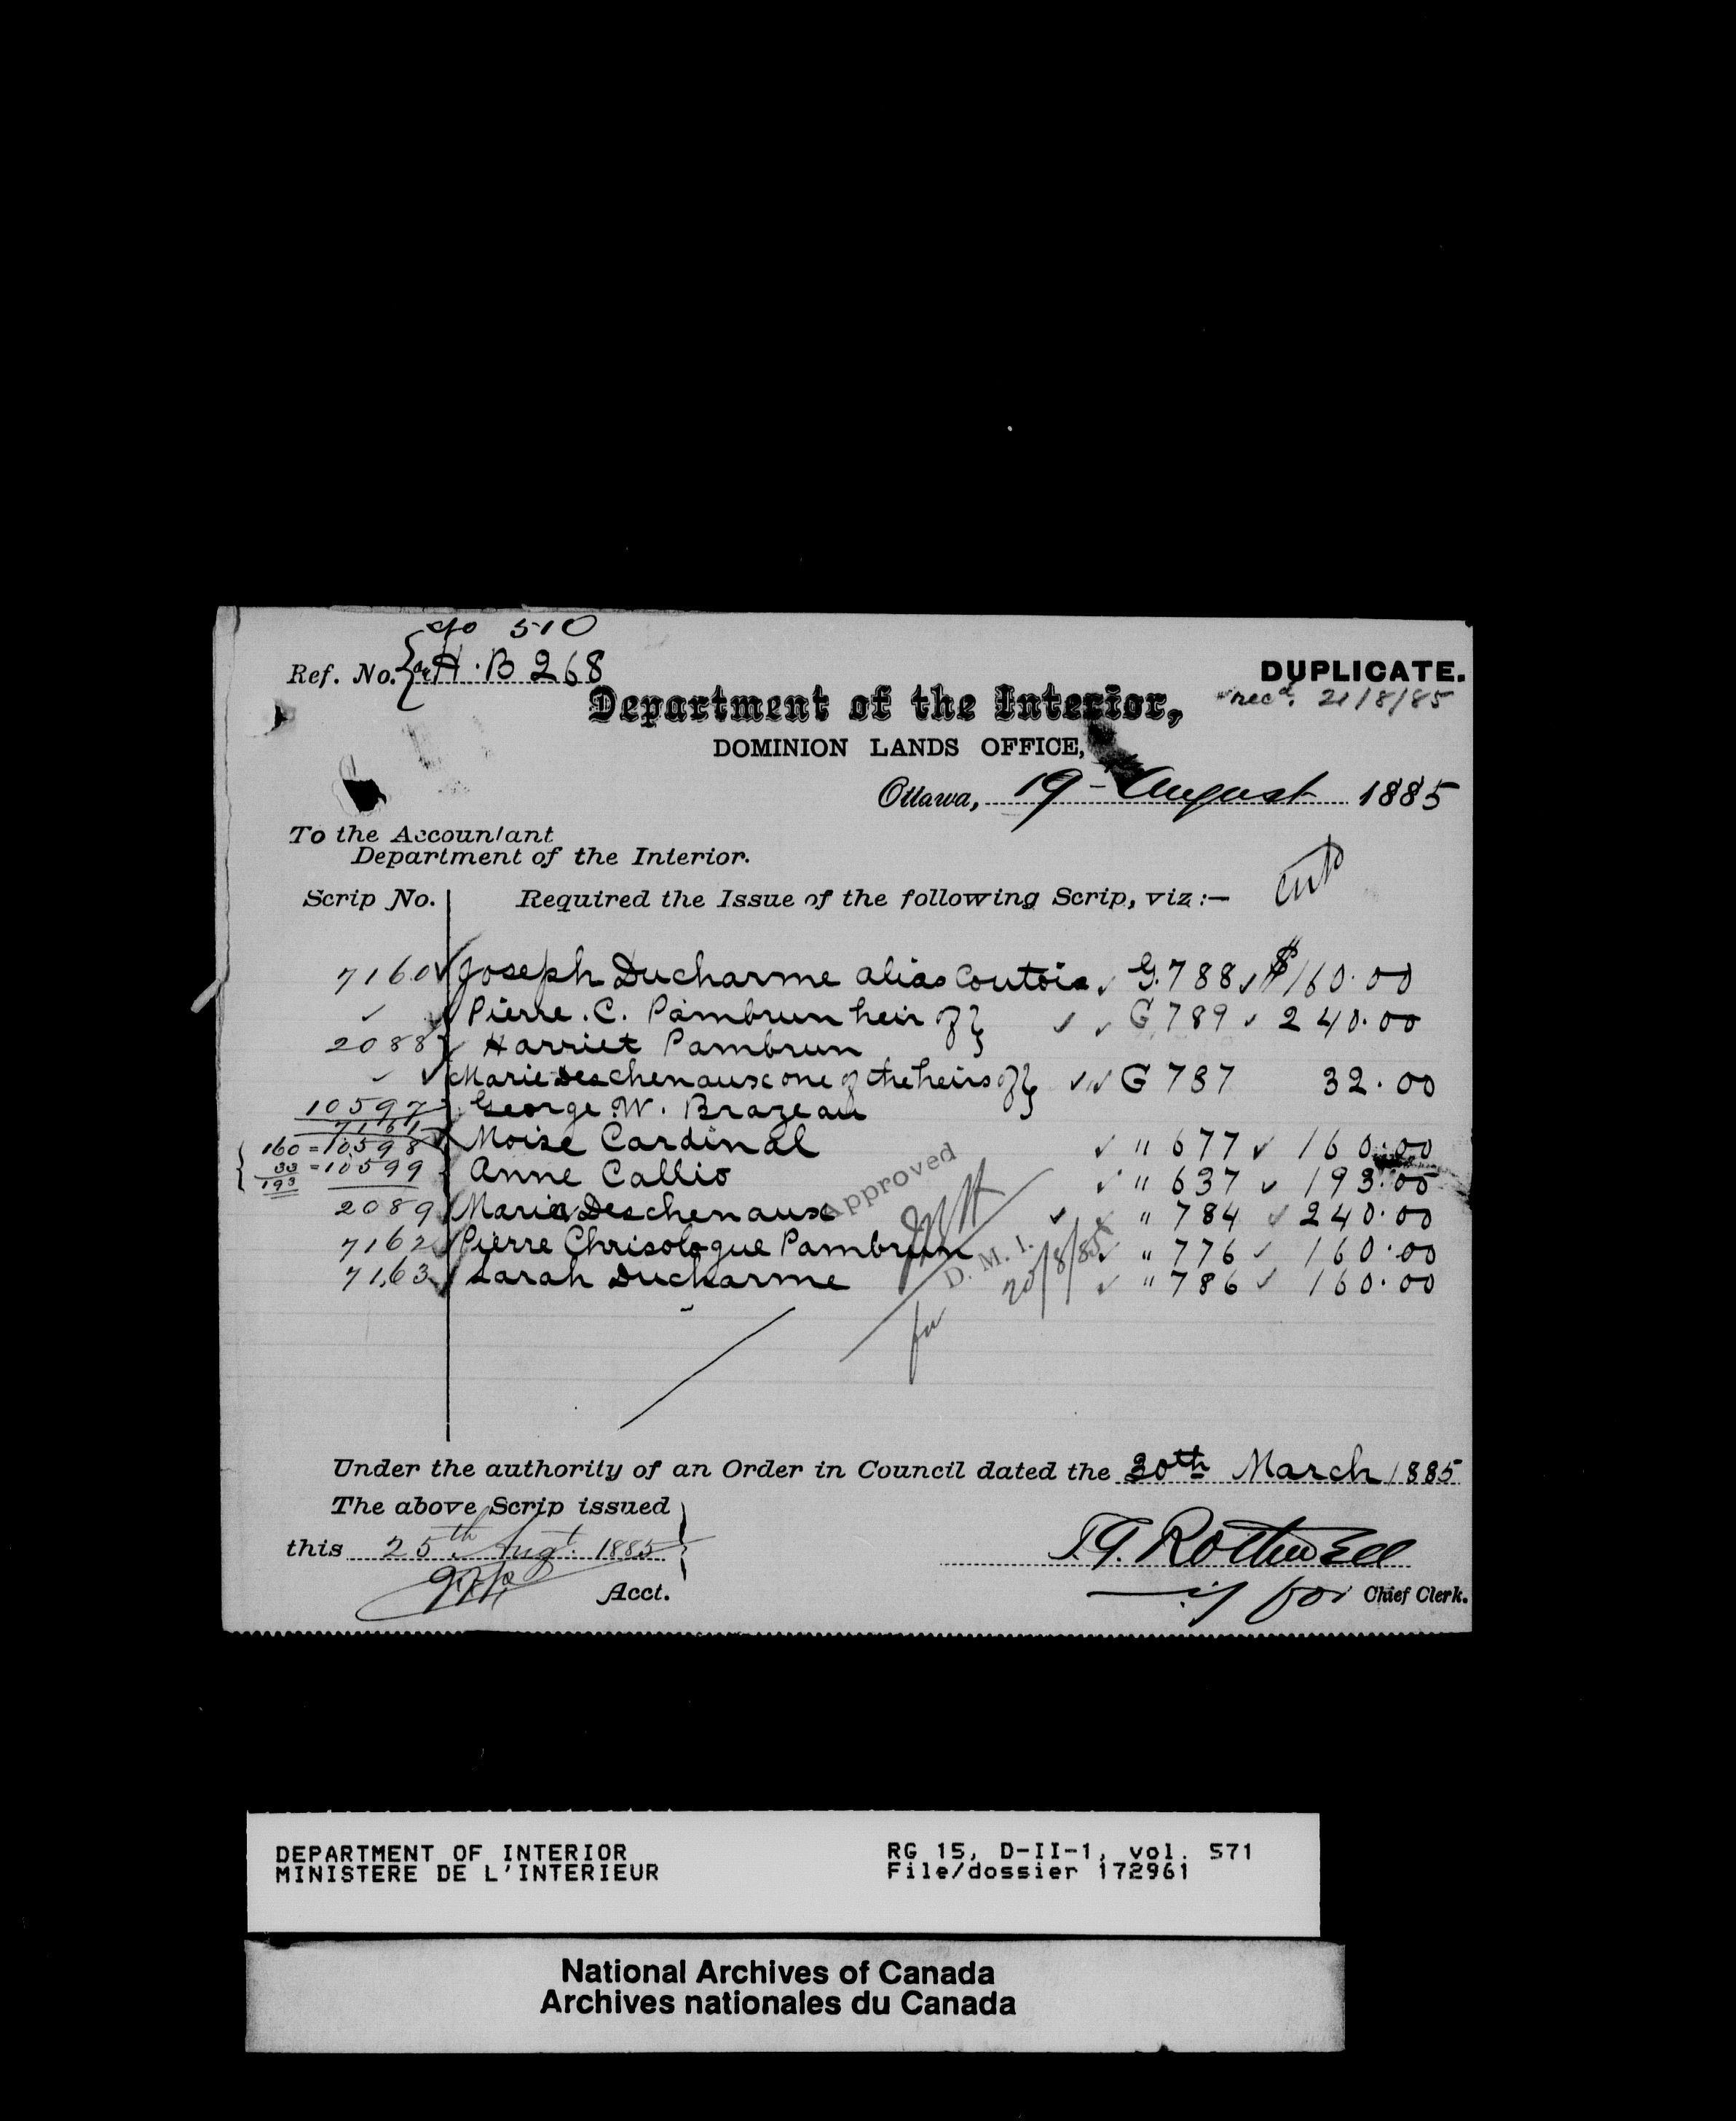 510
Ref. No. H.B 268
DUPLICATE.
rec'd. 21/8/85
Department of the Interior,
DOMINION LANDS OFFICE,
Ottawa, 19 - August 1885
To the Accountant
Department of the Interior.
Scrip No. Required the Issue of the following Scrip, viz:—
7160 ✓ Joseph Ducharme alias Coutois ✓ G. 788 ✓ $160.00
✓ ✓ Pierre. C. Pambrun heir of } ✓ ✓ G 789 ✓ 240.00
2088 } Harriet Pambrun
✓ ✓ Marie Deschenaux one of the heirs of } ✓ ✓ G 787 32.00
10597 } George W. Brazeau
7161 ✓ Moise Cardinal ✓ " 677 ✓ 160.00
160 = 10598
33 = 10599 } Anne Callio ✓ " 637 ✓ 193.00
193
2089 Maria Deschenaux ✓ ✓ " 784 ✓ 240.00
7162 ✓ Pierre Chrisologue Pambrun ✓ " 776 ✓ 160.00
7163 ✓ Sarah Ducharme ✓ " 786 ✓ 160.00
Approved
D. M. I.
20/8/85
for
Under the authority of an Order in Council dated the 30th March 1885
The above Scrip issued
this 25th Augt. 1885
Acct.
Rothwell
for Chief Clerk.
DEPARTMENT OF INTERIOR
MINISTERE DE L'INTERIEUR
RG 15, D-II-1, vol. 571
File/dossier 172961
National Archives of Canada
Archives nationales du Canada